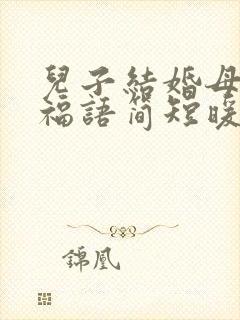 兒子結婚母
福語簡短暖
錦凰